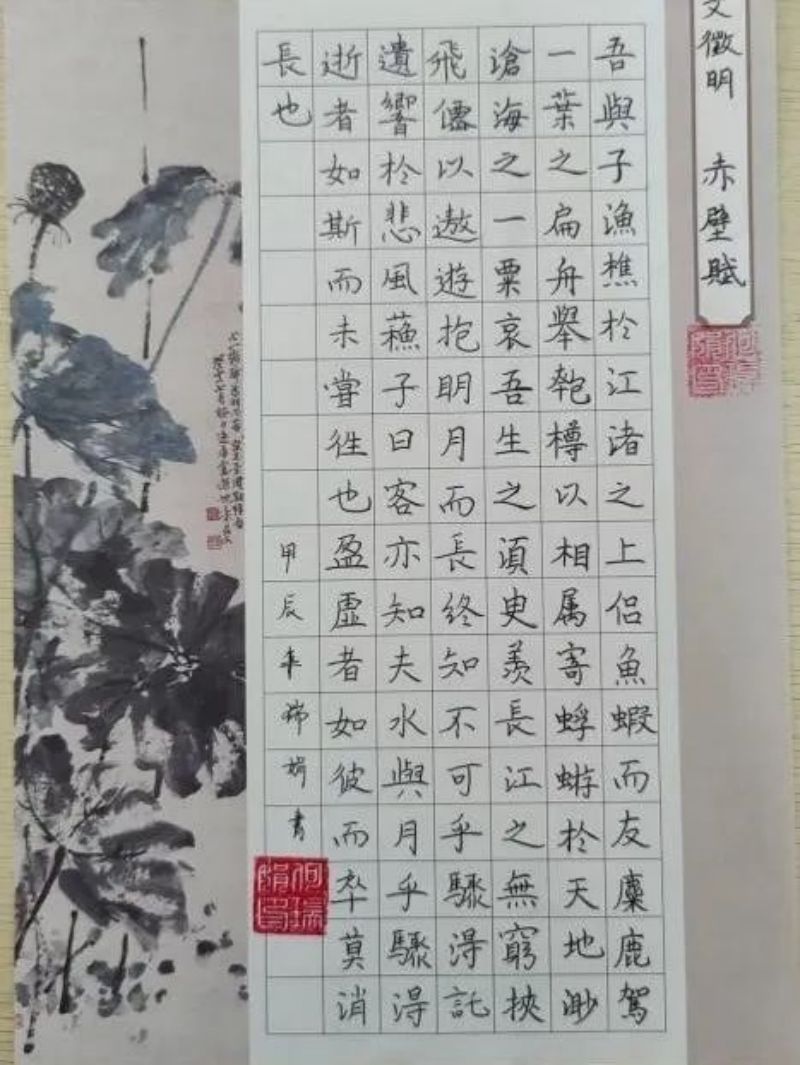 文徵明 赤壁賦
吾與子漁樵於江渚之上侶魚蝦而友麋鹿駕
一葉之扁舟舉匏樽以相属寄蜉蝣於天地渺
滄海之一粟哀吾生之須臾羨長江之無窮挾
飛僊以遨遊抱明月而長終知不可乎驟得託
遺響於悲風蘓子曰客亦知夫水與月乎驟得
逝者如斯而未嘗往也盈虛者如彼而卒莫消
長也
甲辰年瑞娟書
何瑞娟印